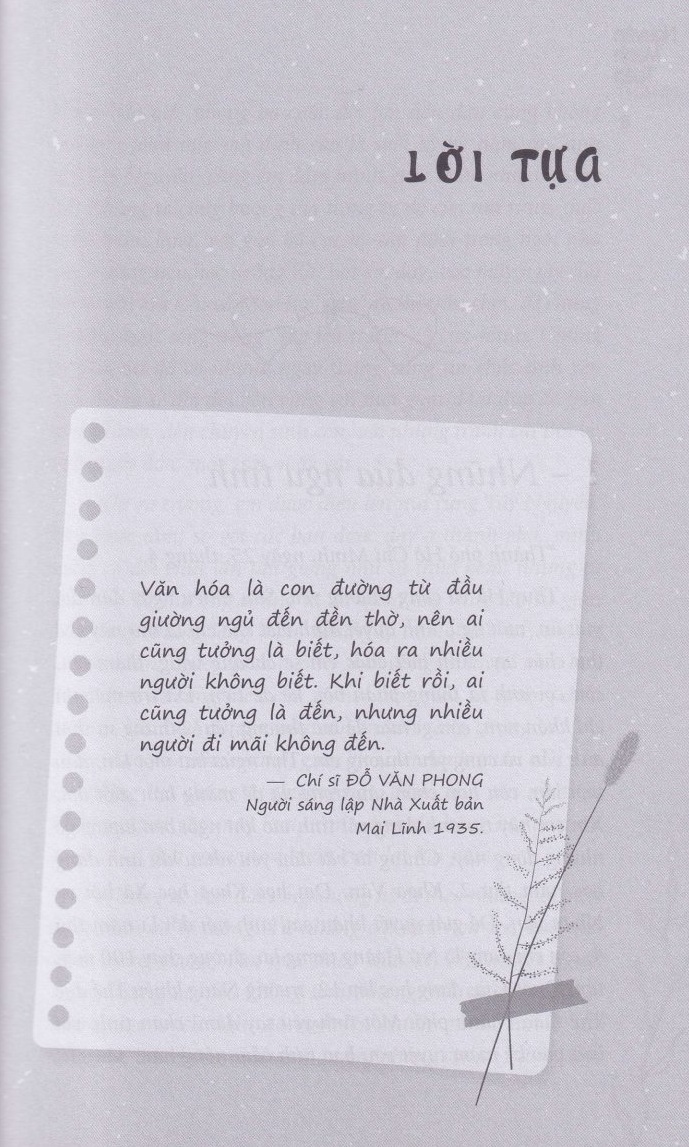 LỜI TỰA
Văn hóa là con đường từ đầu
giường ngủ đến đền thờ, nên ai
cũng tưởng là biết, hóa ra nhiều
người không biết. Khi biết rồi, ai
cũng tưởng là đến, nhưng nhiều
người đi mãi không đến.
— Chí sĩ ĐỖ VĂN PHONG
Người sáng lập Nhà Xuất bản
Mai Lĩnh 1935.